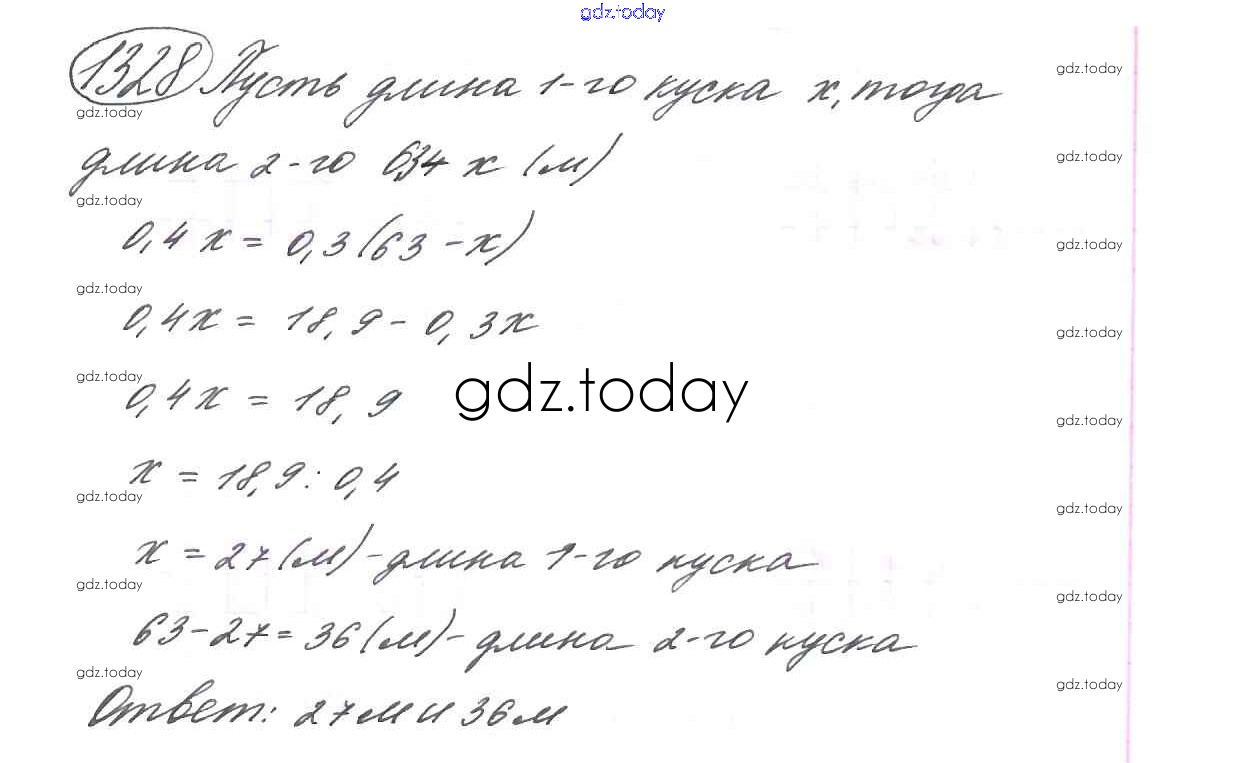 gdz.today
1328 Пусть длина 1-го куска х, тогда
gdz.today
gdz.today
длина 2-го 634 х (м)
gdz.today
gdz.today
0,4х = 0,3(63 - х)
gdz.today
gdz.today
0,4х = 18,9 - 0,3х
gdz.today
gdz.today
0,4х = 18,9
gdz.today
gdz.today
gdz.today
х = 18,9 : 0,4
gdz.today
gdz.today
х = 27 (м) - длина 1-го куска
gdz.today
gdz.today
63 - 27 = 36 (м) - длина 2-го куска
gdz.today
gdz.today
Ответ: 27 м и 36 м